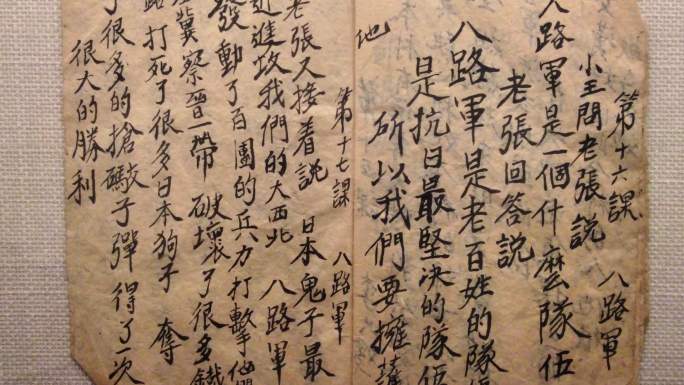 第十六課 八路軍
小王問老張說
八路軍是一個什麼隊伍
老張回答說
八路軍是老百姓的隊伍
是抗日最堅決的隊伍
所以我們要擁護
他
第十七課 八路軍
老張又接着說 日本鬼子最
近進攻我們的大西北 八路軍
發動了百團的兵力打擊他們
冀察晉一帶 破壞了很多鐵
路 打死了很多日本狗子 奪
了很多的搶礮子彈 得了一次
很大的勝利